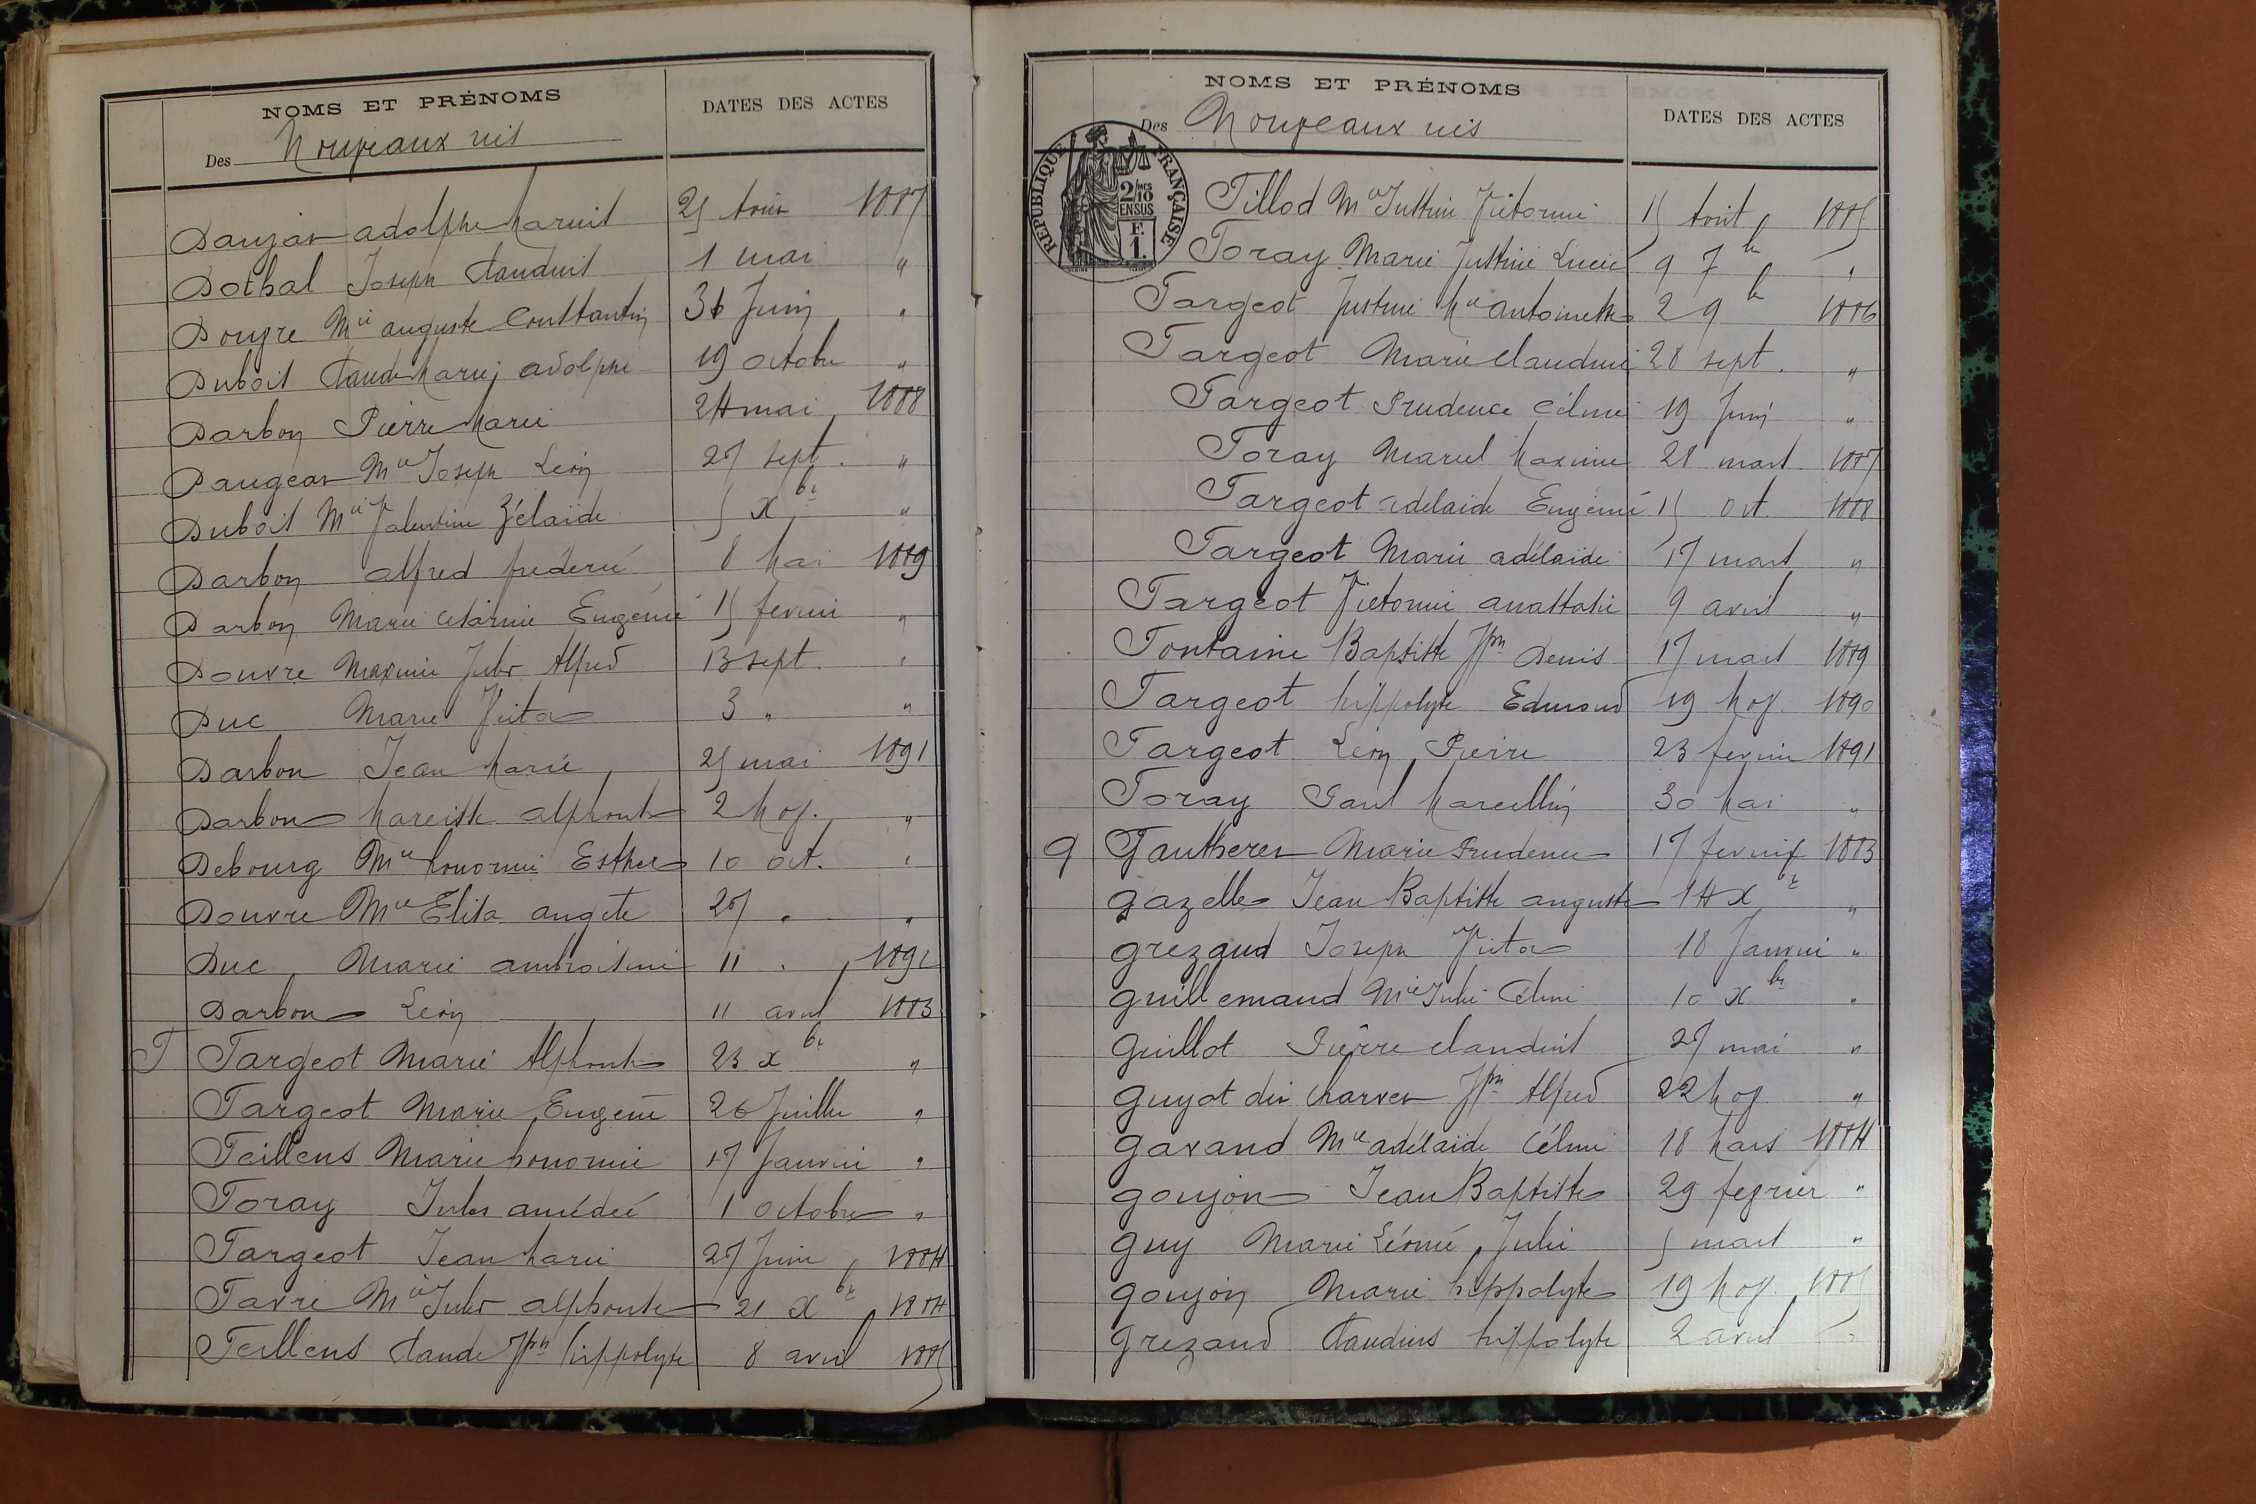 NOMS ET PRÉNOMS
DATES DES ACTES
Des Nouveaux nés
Daujat adolphe Marius 25 Aout 1887
Dothal Joseph Claudius 1 mai "
Douvre Mie auguste Constantin 30 Juin "
Dubois Claude Marie adolphe 19 octobre "
Darbon Pierre Marie 24 mai 1888
Daugeat Mie Joseph Léon 27 sept. "
Dubois Mie Valentine Zélaïde 5 xbre "
Darbon alfred frédéric 8 Mai 1889
Darbon Marie Eugénie 15 fevrier "
Douvre Maxime Jules Alfred 13 sept. "
Duc Marie Victor 3 " "
Darbon Jean Marie 25 mai 1891
Darbon Narcisse alphonse 2 Nov. "
Debourg Mie honorine Esther 10 oct. "
Douvre Mie Elisa angèle 27 " "
Duc Marie ambroisine 11 " 1892
Darbon Léon 11 avril 1883
F Fargeot Marie Alphonse 23 xbre "
Fargeot Marie Eugénie 26 Juillet "
Feillens Marie honorine 17 Janvier "
Foray Jules amédée 1 octobre "
Fargeot Jean Marie 27 Juin 1884
Favre Mie Jules alphonse 21 xbre 1884
Feillens Claude Jph hippolyte 8 avril 1885
NOMS ET PRÉNOMS
DATES DES ACTES
Des Nouveaux nés
RÉPUBLIQUE FRANÇAISE
2/MES
10
EN SUS
F.
1.
Fillod Mie Justine Victorine 15 Aout 1885
Foray Marie Justine Lucie 9 7bre "
Fargeot Justine Mie antoinette 2 9bre 1886
Fargeot Marie Claudine 28 sept. "
Fargeot Prudence Céline 19 Juin "
Foray Marcel Maxime 28 mars 1887
Fargeot adelaide Eugénie 15 oct. 1888
Fargeot Marie adélaïde 17 mars "
Fargeot Victorine anastasie 9 avril "
Fontaine Baptiste Jph Denis 17 mars 1889
Fargeot hippolyte Edmond 19 Nov. 1890
Fargeot Léon Pierre 23 fevrier 1891
Foray Paul Marcellin 30 Mai "
G Gautheret Marie Prudence 17 fevrier 1883
gazelle Jean Baptiste auguste 14 xbre "
grezaud Joseph Victor 18 Janvier "
guillemaud Mie Julie Céline 10 xbre "
guillot Pierre claudius 27 mai "
guyot dit Charvet Jph Alfred 22 Nov. "
gavand Mie adélaïde Céline 18 Mars 1884
goujon Jean Baptiste 29 fevrier "
guy Marie Léonie Julie 5 mars "
goujon Marie hippolyte 19 Nov. 1885
grezaud Claudius hippolyte 2 avril "